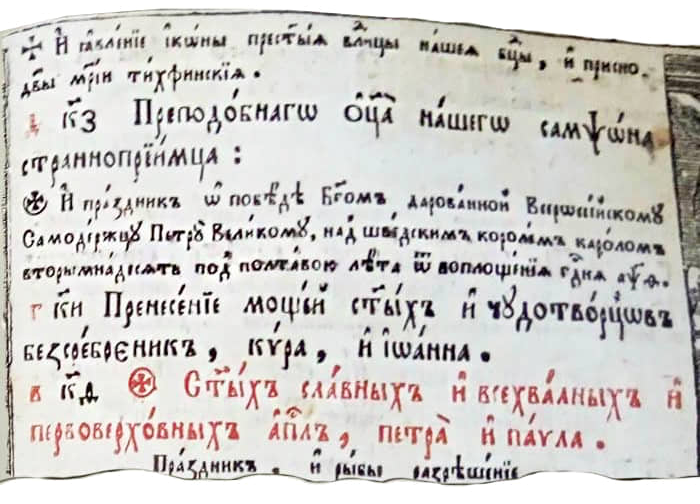 И҆ ꙗ҆вле́нїе і҆кѡ́ны прест҃ы́ѧ вл҇чцы на́шеѧ бц҇ы, и҆ присно-
дв҃ы мр҃і́и ти́хфинскїѧ.
к҃з Преподо́бнагѡ ѻ҆ц҃а̀ на́шегѡ самѱѡ́на
страннопрїи́мца :
И҆ пра́здникъ ѡ҆ побѣ́дѣ Бг҃омъ дарова́нной Всерѡссі́йскомꙋ
Самоде́ржцꙋ Петрꙋ̀ Вели́комꙋ, над̾ шве́дскимъ королє́мъ ка́роломъ
вторы́мнадесѧть под̾ полта́вою лѣ́та ѿ воплоще́нїѧ гд҇нѧ а҂ѱ҃ѳ.
г к҃и Пренесе́нїе моще́й ст҃ы́хъ и҆ чꙋдотво́рцѡвъ
безсре́брєникъ, кѵ́ра, и҆ і҆ѡа́нна.
в к҃ѳ Ст҃ы́хъ сла́вныхъ и҆ всехва́лныхъ и҆
первоверхо́вныхъ а҆п҇лъ, петра̀ и҆ па́ѵла.
Пра́здникъ. и҆ ры́бы разрѣше́нїе